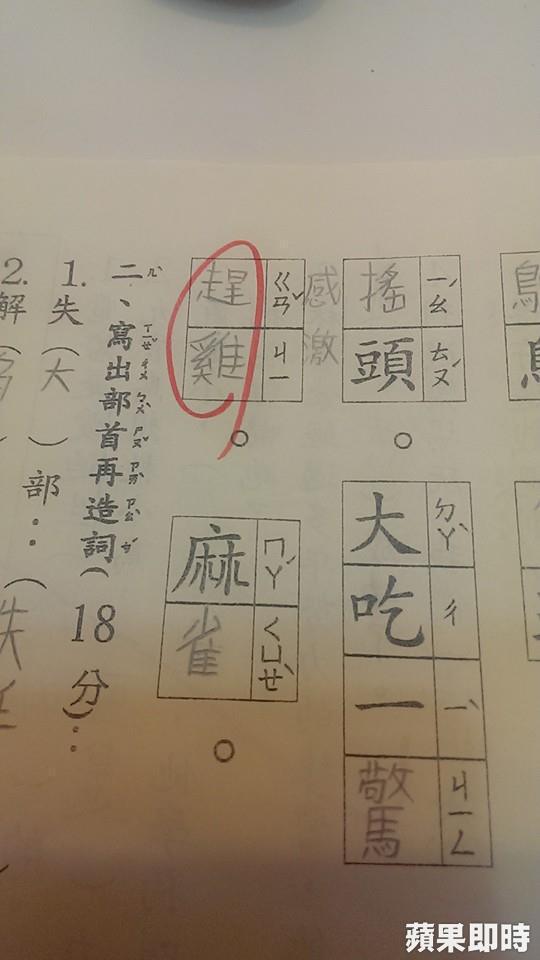 搖頭。大吃一驚
ㄧㄠˊ ㄊㄡˊ ㄉㄚˋ ㄔ ㄧˋ ㄐㄧㄥ
感激
趕雞。麻雀。
ㄍㄢˇ ㄐㄧ ㄇㄚˊ ㄑㄩㄝˋ
二、寫出部首再造詞(18分):
ㄦˋ ㄒㄧㄝˇ ㄔㄨ ㄅㄨˋ ㄕㄡˇ ㄗㄞˋ ㄗㄠˋ ㄘˊ
1. 失(大)部:(失
2. 解(
蘋果即時